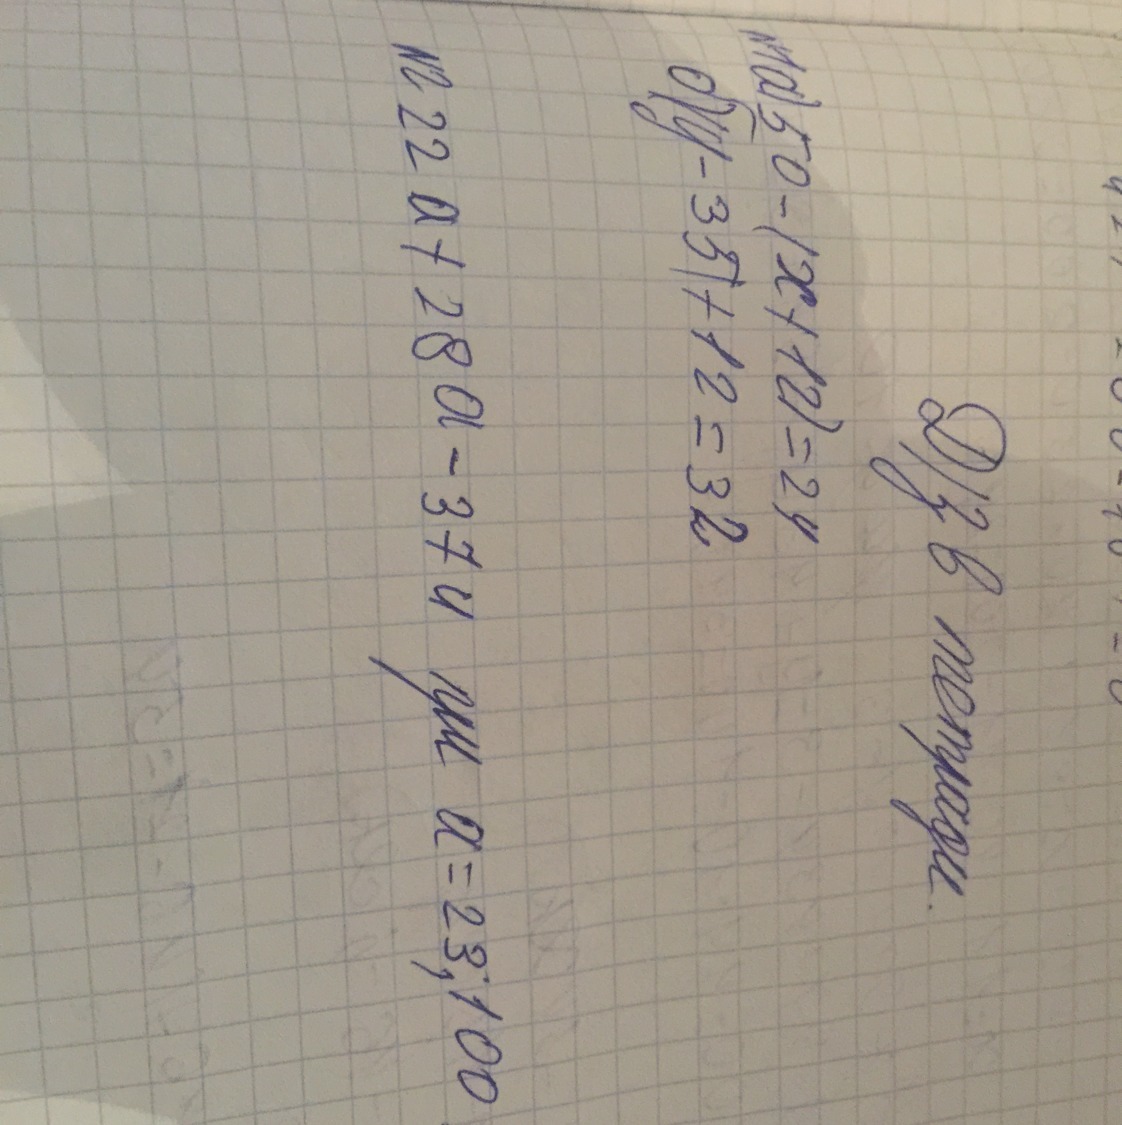 Д/з в тетради.
№1 а) 50-(x+12)=24
б) (y-35)+12=32
№2 22a+28a-374 при a=23, 100